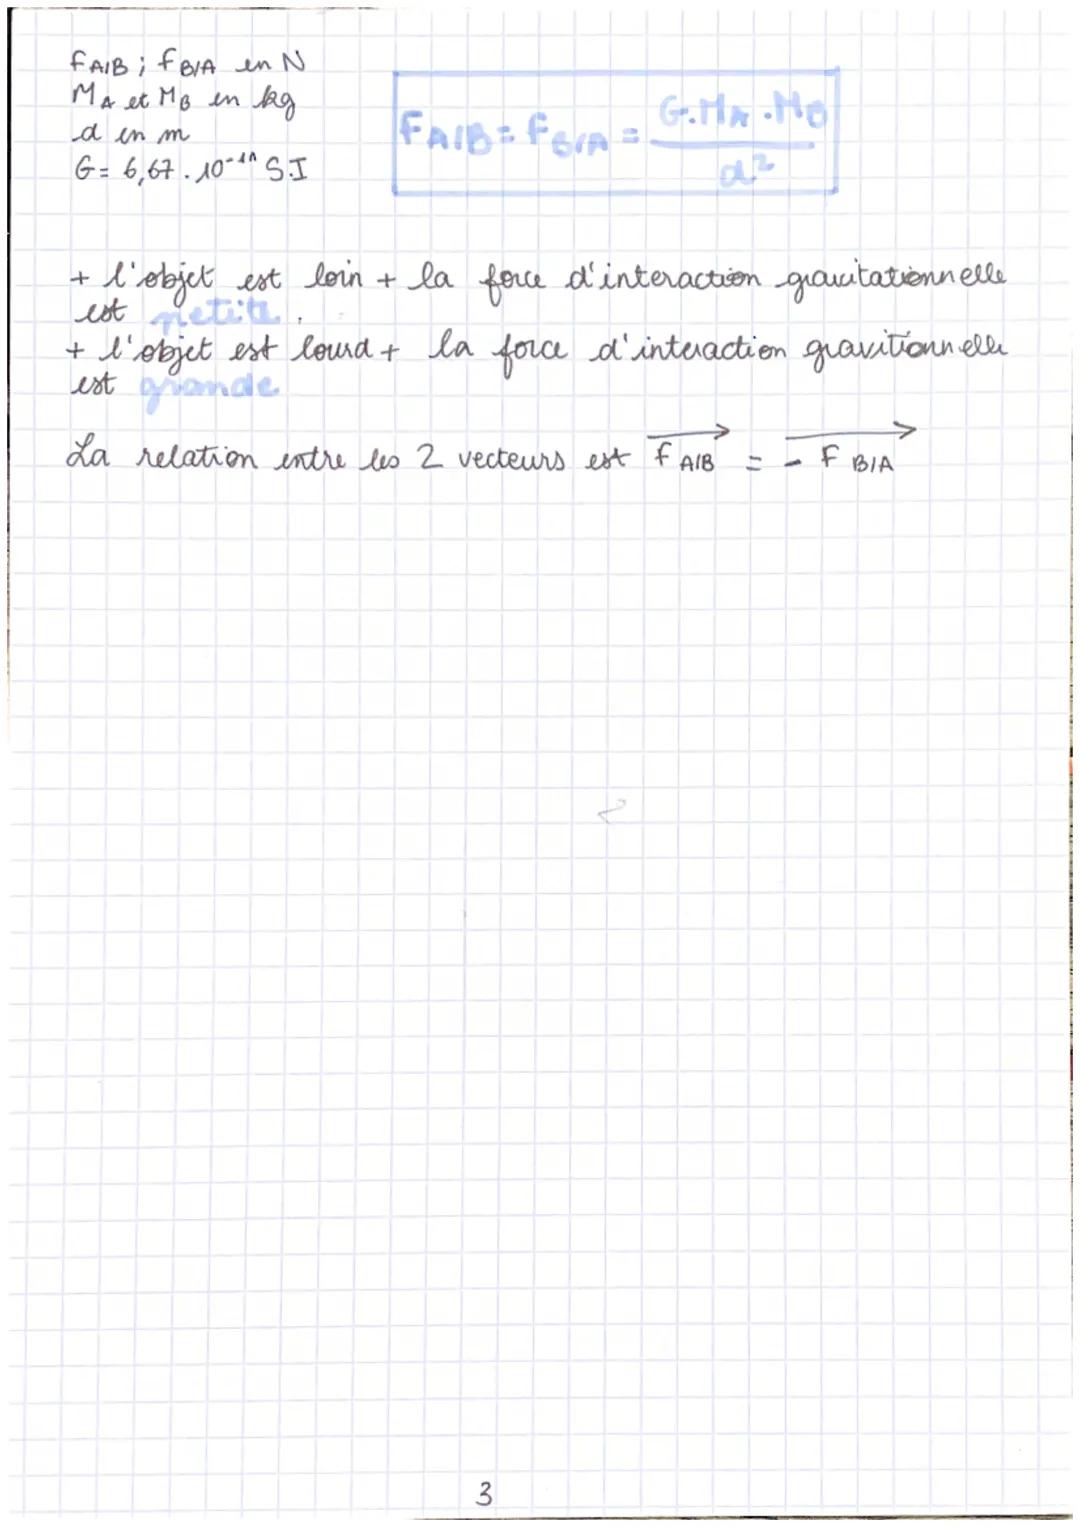 FA/B ; FB/A en N
MA et MB en kg
d en m
G = 6,67 . 10⁻¹¹ S.I
FA/B = FB/A = G.MA.MB / d²
+ l'objet est loin + la force d'interaction gravitationnelle
est petite.
+ l'objet est lourd + la force d'interaction gravitionnelle
est grande
La relation entre les 2 vecteurs est FA/B = - F B/A
3